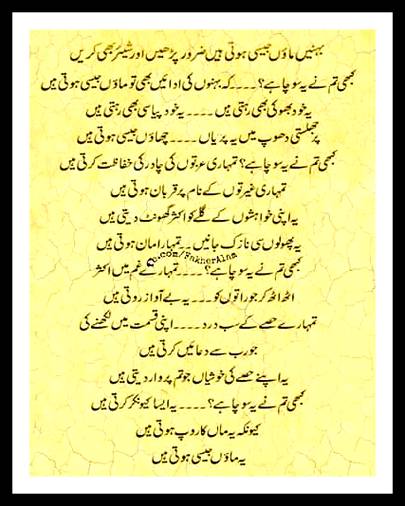 بہنیں ماؤں جیسی ہوتی ہیں ضرور پڑھیں اور شیئر بھی کریں
کبھی تم نے یہ سوچا ہے؟ ۔۔۔۔ کہ بہنوں کی ادائیں بھی تو ماؤں جیسی ہوتی ہیں
یہ خود بھوکی بھی رہتی ہیں ۔۔۔۔ یہ خود پیاسی بھی رہتی ہیں
پر جھلستی دھوپ میں یہ پریاں ۔۔۔۔ چھاؤں جیسی ہوتی ہیں
کبھی تم نے یہ سوچا ہے؟ تمہاری عزتوں کی چادر کی حفاظت کرتی ہیں
تمہاری غیرتوں کے نام پر قربان ہوتی ہیں
یہ اپنی خواہشوں کے گلے کو اکثر گھونٹ دیتی ہیں
یہ پھولوں سی نازک جانیں ۔۔ تمہارا مان ہوتی ہیں
fb.com/FakherAlam
کبھی تم نے یہ سوچا ہے؟ ۔۔۔۔ تمہارے غم میں اکثر
اٹھ اٹھ کر جو راتوں کو ۔۔۔ یہ بے آواز روتی ہیں
تمہارے حصے کے سب درد ۔۔۔۔ اپنی قسمت میں لکھنے کی
جو رب سے دعائیں کرتی ہیں
یہ اپنے حصے کی خوشیاں جو تم پر وار دیتی ہیں
کبھی تم نے یہ سوچا ہے؟ ۔۔۔۔ یہ ایسا کیونکر کرتی ہیں
کیونکہ یہ ماں کا روپ ہوتی ہیں
یہ ماؤں جیسی ہوتی ہیں